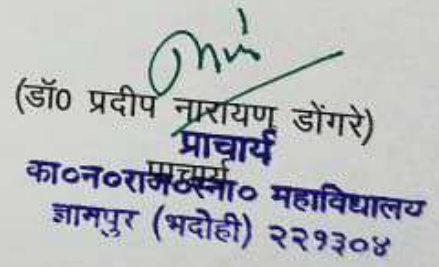 (डॉ0 प्रदीप नारायण डोंगरे)
प्राचार्य
प्राचार्य
का०न०राज०स्ना० महाविधालय
ज्ञामपुर (भदोही) २२१३०४